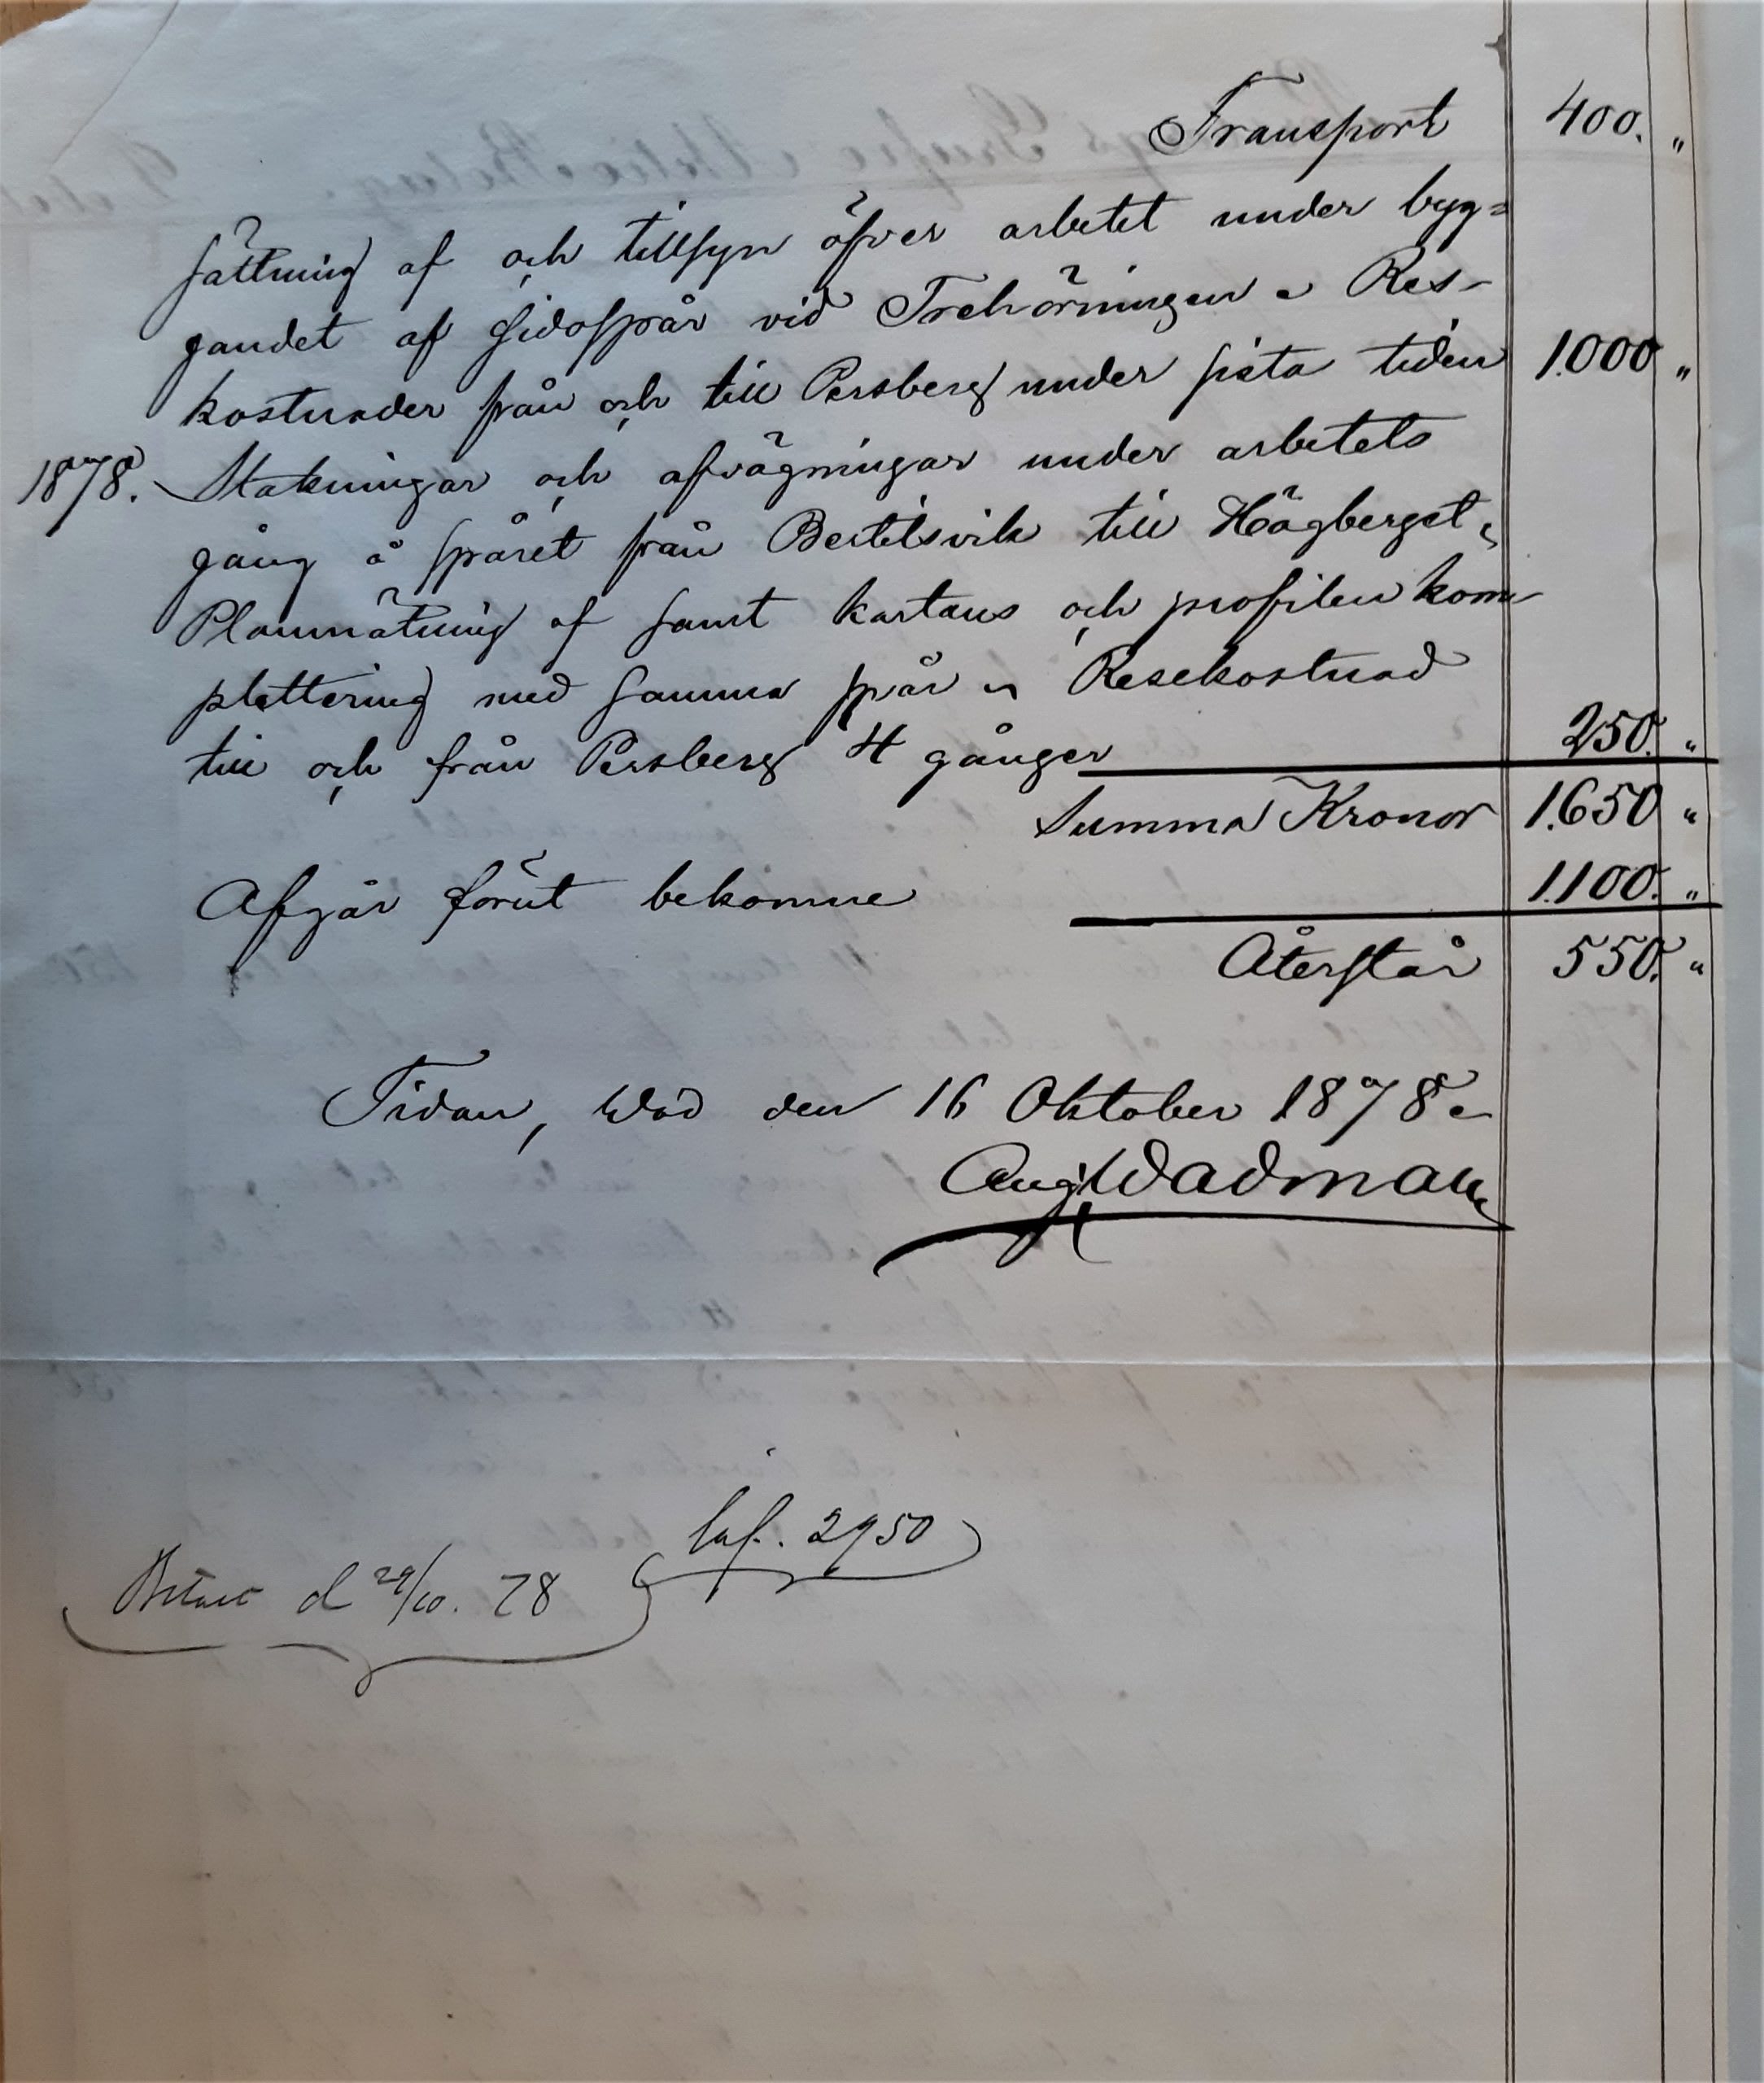 Transport 400. "
sättning af och tillsyn öfver arbetet under byg=
gandet af sidospår vid Trehörningen. Res-
kostnader från och till Persberg under sista tiden 1.000 "
1878. Stakningar och afvägningar under arbetets
gång å spåret från Bertilsvik till Högberget,
Planmätning af samt kartans och profilen kom-
plettering med samma spår. Resekostnad
till och från Persberg 4 gånger 250. "
Summa Kronor 1.650 "
Afgår förut bekomne 1.100. "
Återstår 550. "
Tidan, Wad den 16 Oktober 1878.
Aug. Wadman
Inf. 2950
d 29/10. 78